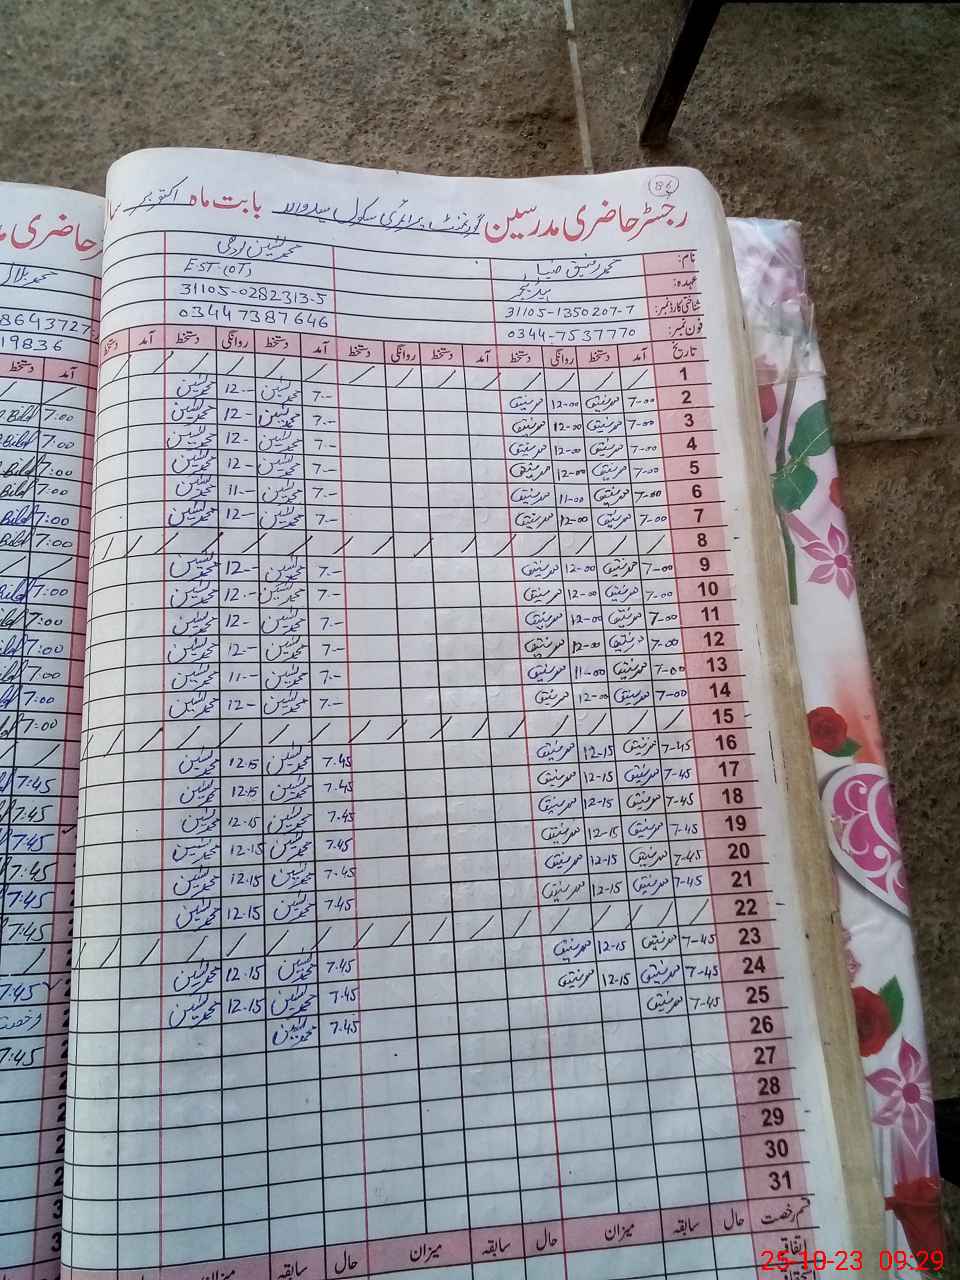 86
رجسٹر حاضری مدرسین گورنمنٹ پرائمری سکول بابت ماہ اکتوبر
نام: محمد رفیق ضیا محمد یٰسین لودھی
عہدہ: ہیڈ ٹیچر EST (OT)
شناختی کارڈ نمبر: 31105-1350207-7 31105-0282313-5
فون نمبر: 0344-7537770 03447387646
تاریخ آمد دستخط روانگی دستخط آمد دستخط روانگی دستخط آمد دستخط روانگی دستخط آمد دستخط
1
2 7-00 محمد رفیق 12-00 محمد رفیق 7.- محمد یٰسین 12-- محمد یٰسین
3 7-00 محمد رفیق 12-00 محمد رفیق 7.- محمد یٰسین 12-- محمد یٰسین
4 7-00 محمد رفیق 12-00 محمد رفیق 7.- محمد یٰسین 12- محمد یٰسین
5 7-00 محمد رفیق 12-00 محمد رفیق 7.- محمد یٰسین 12-- محمد یٰسین
6 7-00 محمد رفیق 11-00 محمد رفیق 7.- محمد یٰسین 11-- محمد یٰسین
7 7-00 محمد رفیق 12-00 محمد رفیق 7.- محمد یٰسین 12-- محمد یٰسین
8
9 7-00 محمد رفیق 12-00 محمد رفیق 7.- محمد یٰسین 12-- محمد یٰسین
10 7-00 محمد رفیق 12-00 محمد رفیق 7.- محمد یٰسین 12-- محمد یٰسین
11 7-00 محمد رفیق 12-00 محمد رفیق 7.- محمد یٰسین 12- محمد یٰسین
12 7-00 محمد رفیق 12-00 محمد رفیق 7.- محمد یٰسین 12-- محمد یٰسین
13 7-00 محمد رفیق 11-00 محمد رفیق 7.- محمد یٰسین 11-- محمد یٰسین
14 7-00 محمد رفیق 12-00 محمد رفیق 7.- محمد یٰسین 12- محمد یٰسین
15
16 7-45 محمد رفیق 12-15 محمد رفیق 7.45 محمد یٰسین 12.15 محمد یٰسین
17 7-45 محمد رفیق 12-15 محمد رفیق 7.45 محمد یٰسین 12.15 محمد یٰسین
18 7-45 محمد رفیق 12-15 محمد رفیق 7.45 محمد یٰسین 12.15 محمد یٰسین
19 7-45 محمد رفیق 12-15 محمد رفیق 7.45 محمد یٰسین 12.15 محمد یٰسین
20 7-45 محمد رفیق 12-15 محمد رفیق 7.45 محمد یٰسین 12.15 محمد یٰسین
21 7-45 محمد رفیق 12-15 محمد رفیق 7.45 محمد یٰسین 12.15 محمد یٰسین
22
23 7-45 محمد رفیق 12-15 محمد رفیق 7.45 محمد یٰسین 12.15 محمد یٰسین
24 7-45 محمد رفیق 12-15 محمد رفیق 7.45 محمد یٰسین 12.15 محمد یٰسین
25 7-45 محمد رفیق 7.45 محمد یٰسین
26
27
28
29
30
31
قسم رخصت حال سابقہ میزان حال سابقہ میزان حال سابقہ میزان
اتفاقیہ
حاضری
محمد بلال
8643727
19836
آمد دستخط
Bilal 7:00
Bilal 7:00
Bilal 7:00
Bilal 7:00
Bilal 7:00
Bilal 7:00
Bilal 7:00
7:00
7:00
7:00
7:00
7:00
7:45
7:45
7:45
7:45
7:45
7:45
7:45
رخصت
7:45
25-10-23 09:29